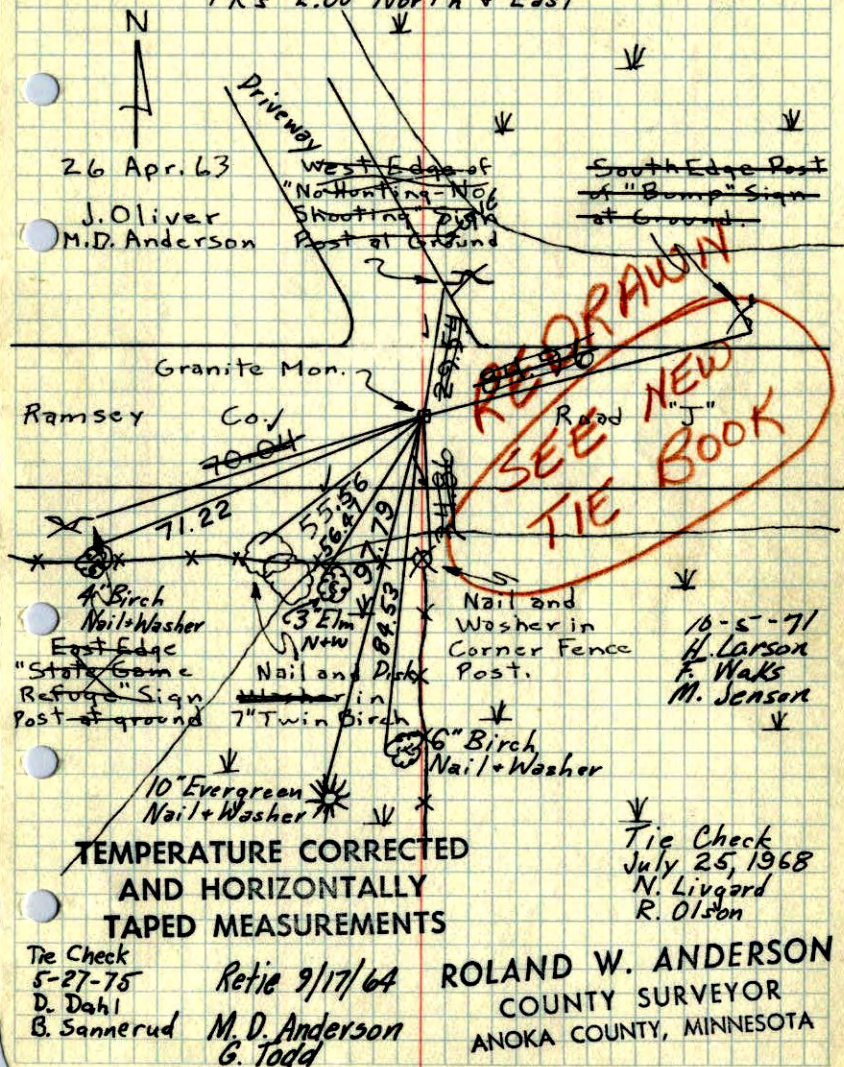 N
Driveway
26 Apr. 63
J. Oliver
M.D. Anderson
West Edge of
"No Hunting-No
Shooting" Sign
Post at Ground
South Edge Post
of "Bump" Sign
at Ground.
REDRAWN
SEE NEW
TIE BOOK
Granite Mon.
Ramsey Co. Road "J"
70.04
71.22
55.56
56.47
97.79
84.53
4" Birch
Nail+Washer
East Edge
"State Game
Refuge" Sign
Post at ground
3" Elm
N+W
Nail and Disk
Washer in
7" Twin Birch
Nail and
Washer in
Corner Fence
Post.
10-5-71
H. Larson
F. Waks
M. Jenson
6" Birch
Nail+Washer
10" Evergreen
Nail+Washer
TEMPERATURE CORRECTED
AND HORIZONTALLY
TAPED MEASUREMENTS
Tie Check
July 25, 1968
N. Livgard
R. Olson
Tie Check
5-27-75
D. Dahl
B. Sannerud
Retie 9/17/64
M.D. Anderson
G. Todd
ROLAND W. ANDERSON
COUNTY SURVEYOR
ANOKA COUNTY, MINNESOTA